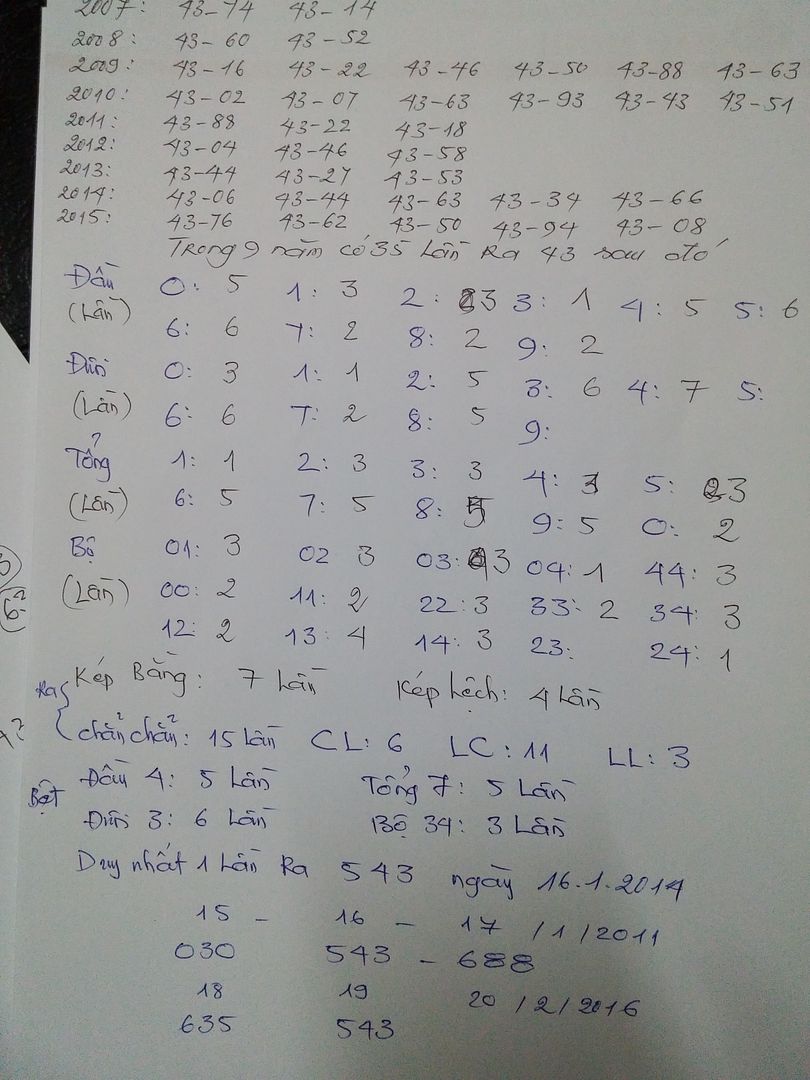 2007: 43-74 43-14
2008: 43-60 43-52
2009: 43-16 43-22 43-46 43-50 43-88 43-63
2010: 43-02 43-07 43-63 43-93 43-43 43-51
2011: 43-88 43-22 43-18
2012: 43-04 43-46 43-58
2013: 43-44 43-27 43-53
2014: 43-06 43-44 43-63 43-34 43-66
2015: 43-76 43-62 43-50 43-94 43-08
Trong 9 năm có 35 Lần Ra 43 sau đó
Đầu 0: 5 1: 3 2: 3 3: 1 4: 5 5: 6
(Lần) 6: 6 7: 2 8: 2 9: 2
Đuôi 0: 3 1: 1 2: 5 3: 6 4: 7 5:
(Lần) 6: 6 7: 2 8: 5 9:
Tổng 1: 1 2: 3 3: 3 4: 3 5: 3
(Lần) 6: 5 7: 5 8: 5 9: 5 0: 2
Bộ 01: 3 02 3 03: 3 04: 1 44: 3
(Lần) 00: 2 11: 2 22: 3 33: 2 34: 3
12: 2 13: 4 14: 3 23: 24: 1
Ra Kép Bằng: 7 Lần Kép Lệch: 4 Lần
chẵn chẵn: 15 Lần CL: 6 LC: 11 LL: 3
Bệt Đầu 4: 5 Lần Tổng 7: 5 Lần
Đuôi 3: 6 Lần Bộ 34: 3 Lần
Duy nhất 1 Lần Ra 543 ngày 16.1.2014
15 - 16 - 17 /1/2011
030 543 - 688
18 19 20 /2/2016
635 543